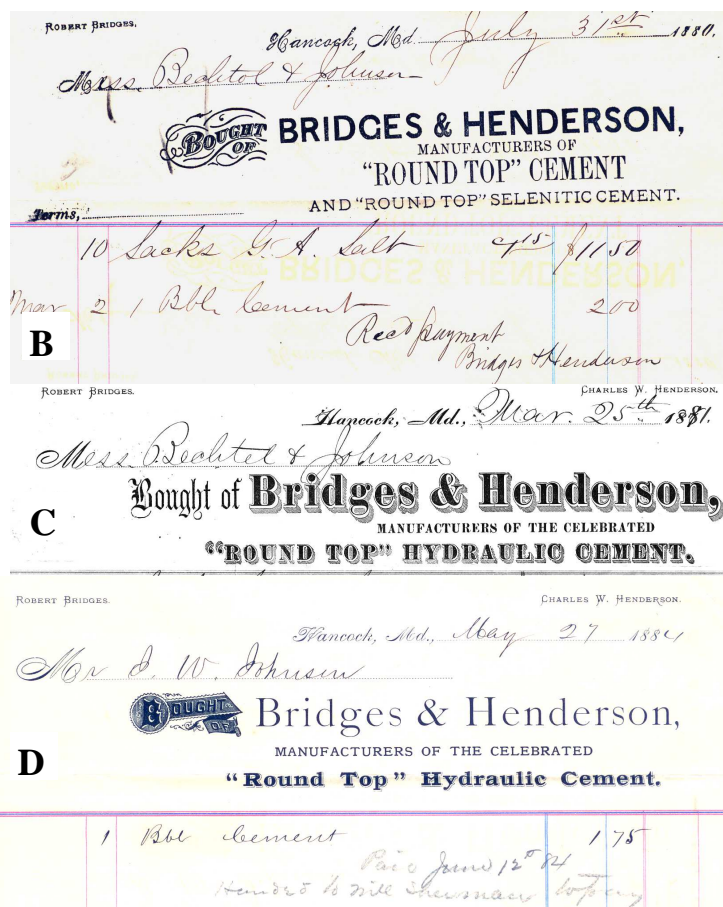 ROBERT BRIDGES.
Hancock, Md. July 31st 1880.
Mess. Bechtol & Johnson
BOUGHT OF BRIDGES & HENDERSON,
MANUFACTURERS OF
"ROUND TOP" CEMENT
AND "ROUND TOP" SELENITIC CEMENT.
Terms,
10 Sacks G. A. Salt $11 50
Mar 2 1 Bbl Cement 2 00
Recd payment
Bridges & Henderson
B
ROBERT BRIDGES. CHARLES W. HENDERSON.
Hancock, Md., Mar. 25th 1881.
Mess. Bechtel & Johnson
Bought of Bridges & Henderson,
C
MANUFACTURERS OF THE CELEBRATED
"ROUND TOP" HYDRAULIC CEMENT.
ROBERT BRIDGES. CHARLES W. HENDERSON.
Hancock, Md., May 27 1884
Mr J. W. Johnson
BOUGHT OF Bridges & Henderson,
MANUFACTURERS OF THE CELEBRATED
D
"Round Top" Hydraulic Cement.
1 Bbl Cement 1 75
Paid June 12th 84
Handed to Will to pay